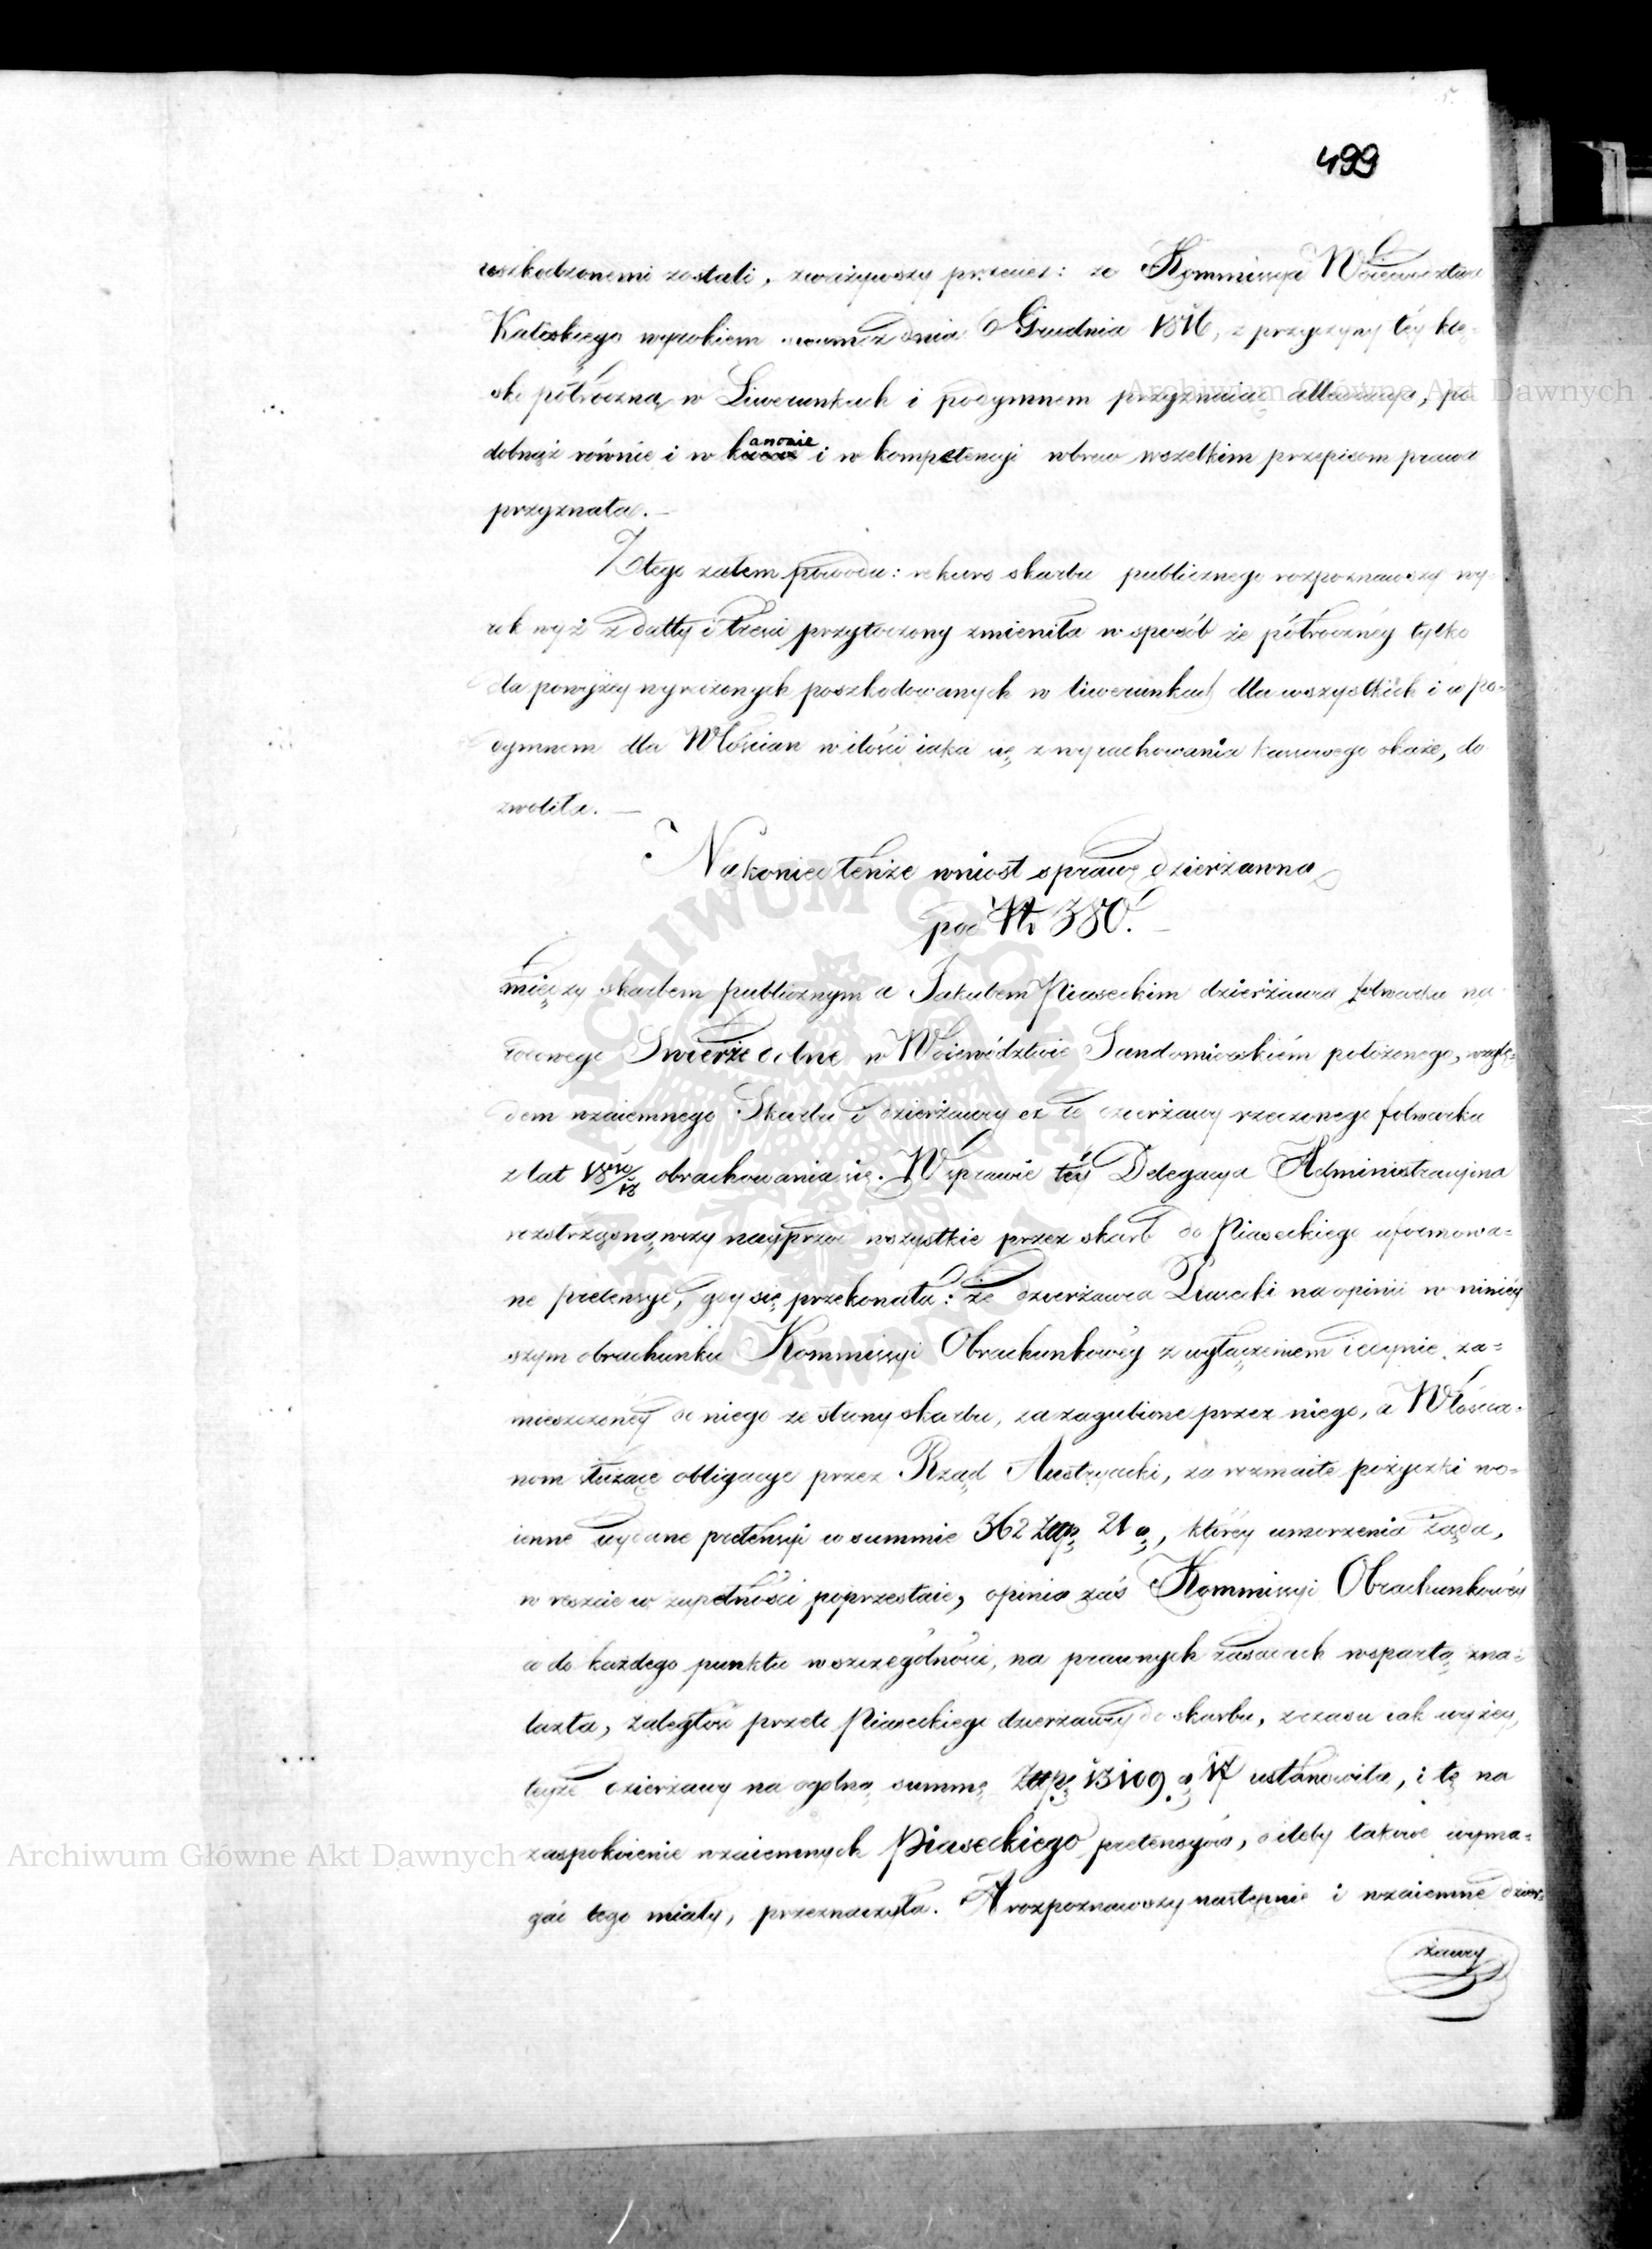 499
uszkodzonemi zostali, zważywszy przecież: że Kommissya Woiewództwa
Kaliskiego wyrokiem swoim z dnia 6 Grudnia 1816, z przyczyny téy klę-
ski półroczną w Liwerunkach i podymnem przyznaiąc allewiacyą, po
dobnąż równie i w kanonie i w kompetencyi wbrew wszelkim przepisom prawa
przyznała.—
Z tego zatem powodu: rekurs skarbu publicznego rozpoznawszy wy-
rok wyż z datty i treści przytoczony zmieniła w sposób że półrocznéy tylko
dla powyżéy wyrażonych poszkodowanych w liwerunkach dla wszystkich i w po-
dymnem dla Włościan w ilości iaka się z wyrachowania kassowego okaże, do
zwoliła.—
Nakoniec tenże wniosł sprawę dzierżawną
pod Nr 380.—
między skarbem publicznym a Jakubem Piaseckim dzierżawcą folwarku na-
rodowego Swierże dolne w Woiewództwie Sandomirskiém położonego, wzglę-
dem wzaiemnego Skarbu i dzierżawcy ex re dzierżawy rzeczonego folwarku
z lat obrachowania się. W sprawie téy Delegacya Administracyina
rozstrząsnąwszy nayprzód wszystkie przez skarb do Piaseckiego uformowa-
ne pretensye, gdy się przekonała: że dzierżawca Piasecki na opinii w niniey
szym obrachunku Kommissyi Obrachunkowéy z wyłączeniem iedynie, za-
mieszczonéy do niego ze strony skarbu, za zagubione przez niego, a Włościa-
nom służące obligacye przez Rząd Austryacki, za rozmaite pożyczki wo-
ienne wydane pretensyi w summie 362 Złp. 21 g., któréy umorzenia żąda,
w reszcie w zupełności poprzestaie, opinią zaś Kommissyi Obrachunkowéy
a do każdego punktu w szczególności, na prawnych zasadach wspartą zna-
lazła, zaległość przeto Piaseckiego dzierżawcy do skarbu, z czasu iak wyżey,
teyże dzierżawy na ogolną summę Złp. 13109 g. 17 ustanowiła, i tę na
zaspokoienie wzaiemnych Piaseckiego pretensyów, oileby takowe wyma-
gać tego miały, przeznaczyła. A rozpoznawszy następnie i wzaiemne dzier-
żawcy
Archiwum Główne Akt Dawnych
Archiwum Główne Akt Dawnych
ARCHIWUM GŁÓWNE AKT DAWNYCH